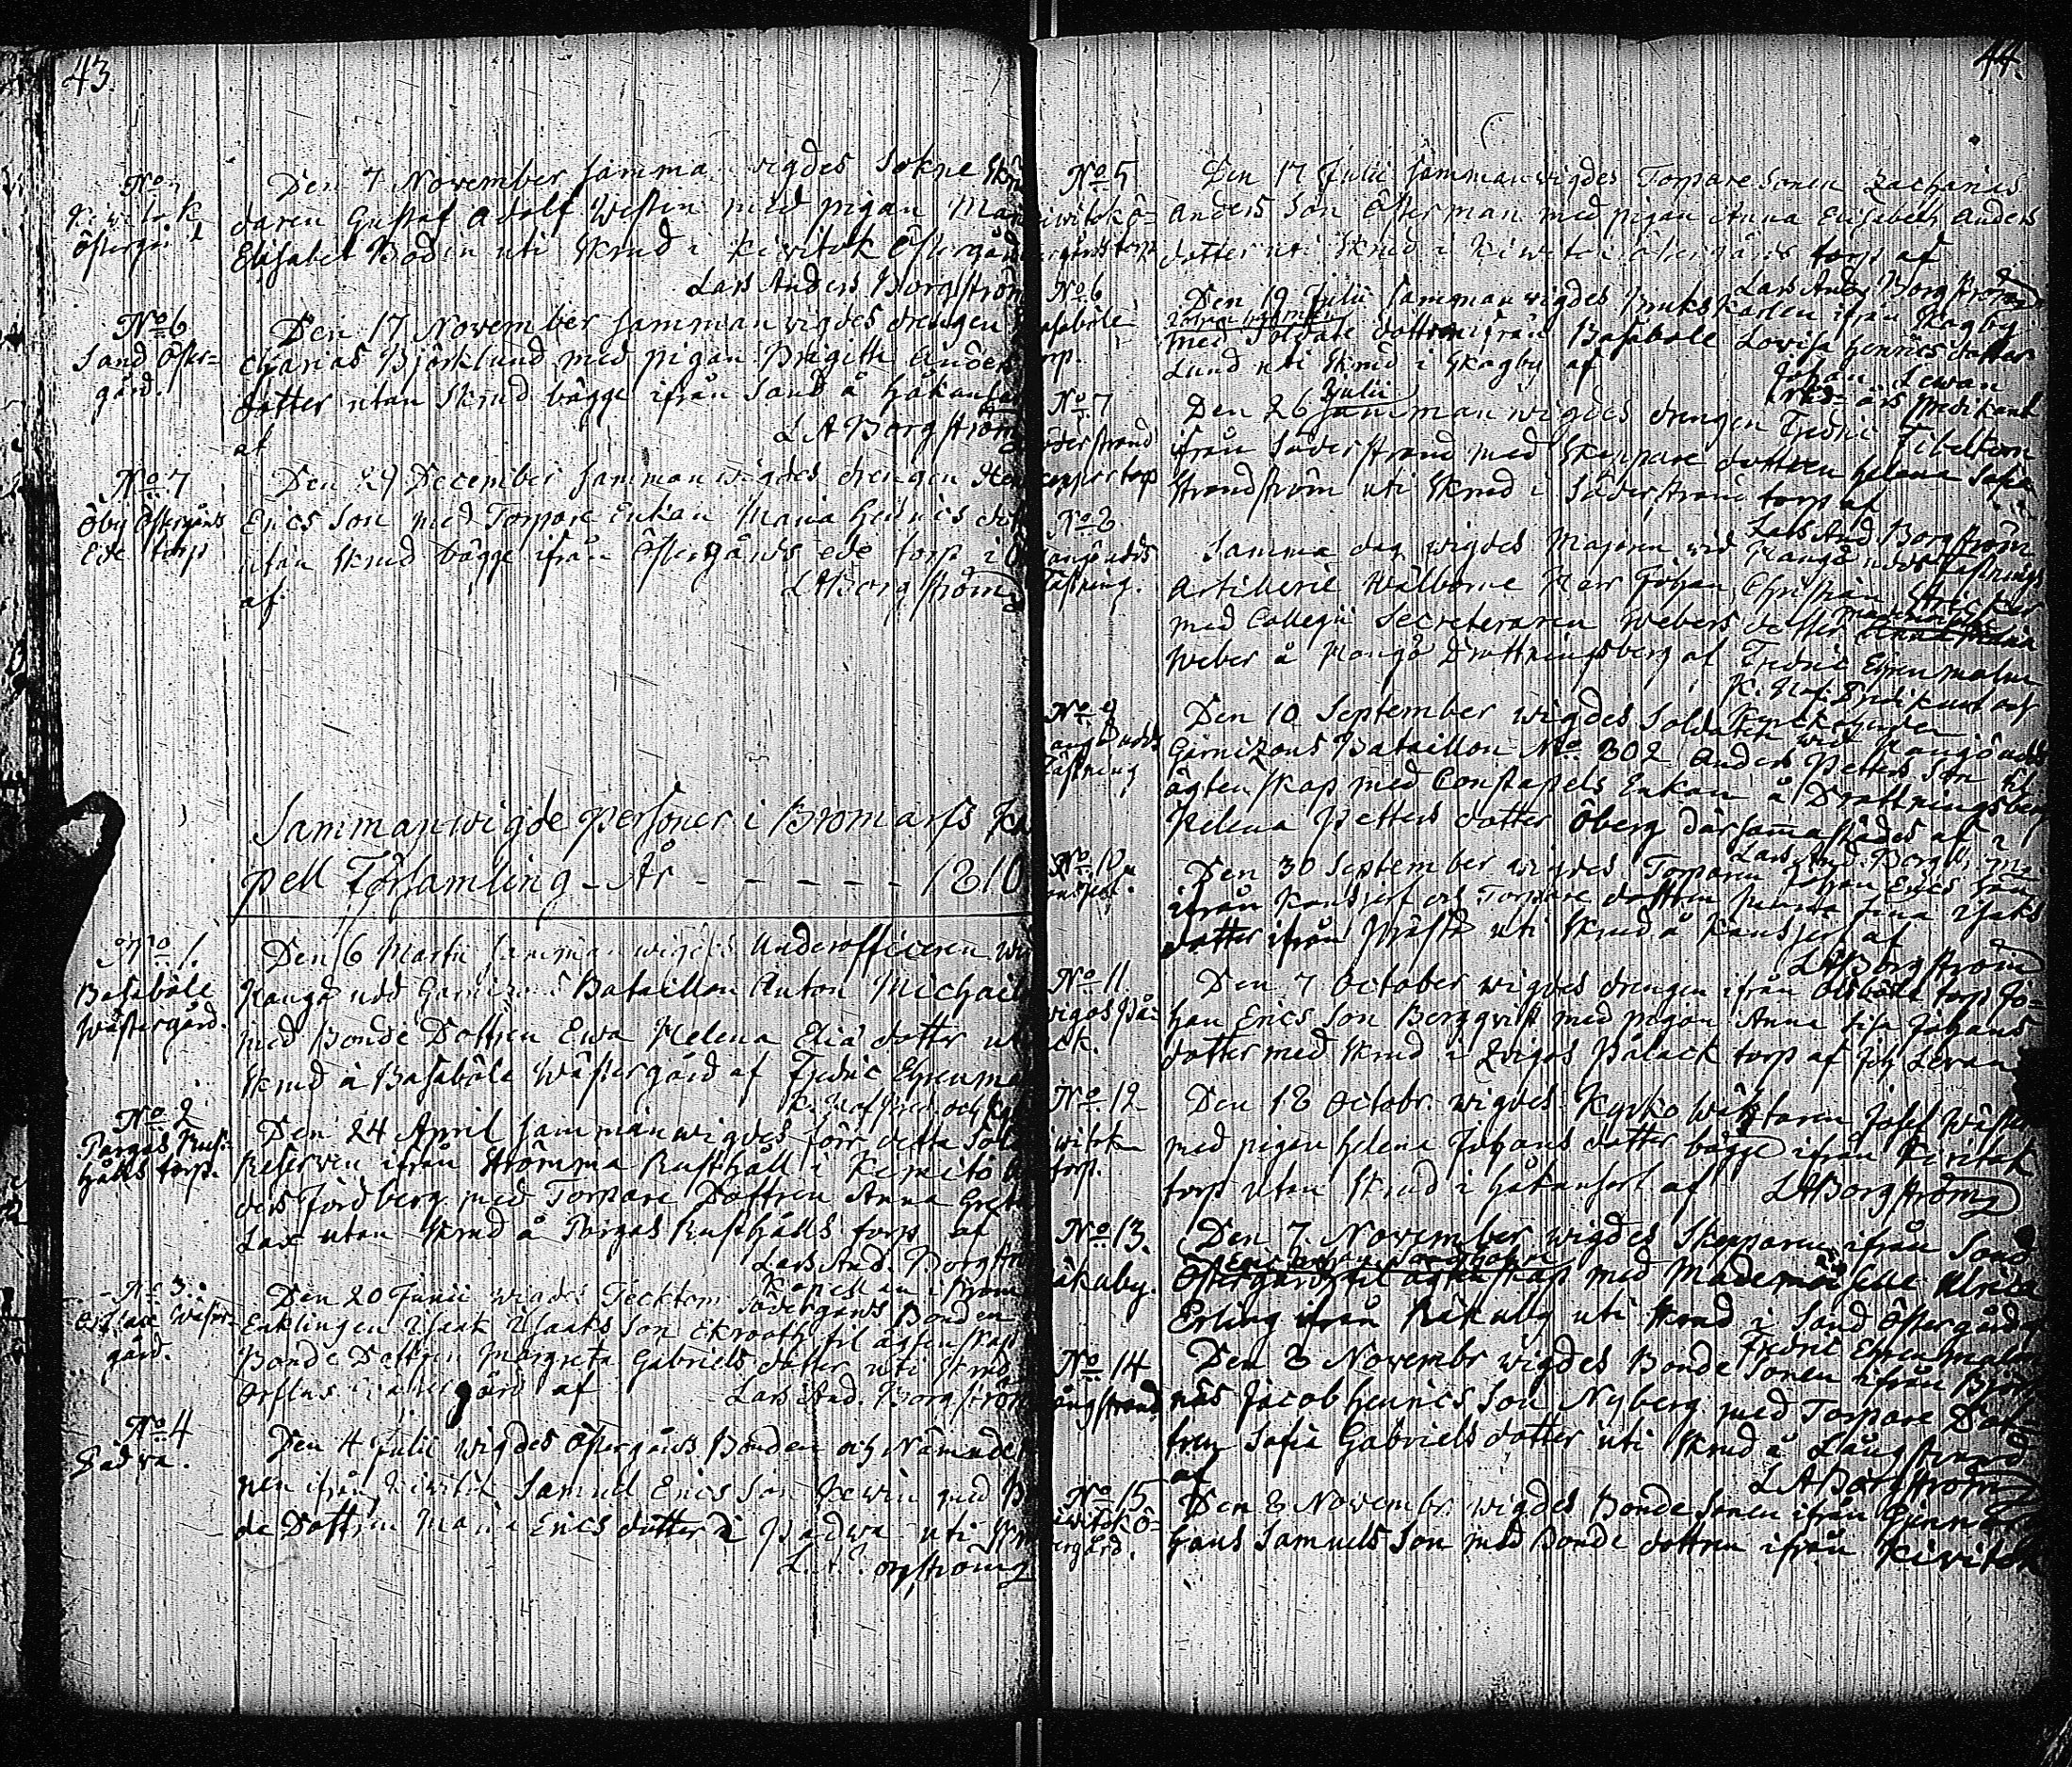 43.
No 5
Kiwitok
Östergård
Den 7 November samman wigdes Sokne Skrä
daren Gustaf Adolf Westin med pigan Mar
Elisabet Bodin uti Skrud i Kiwitok Östergård
Lars Anders Borgström
No 6
Sand Öster-
gård.
Den 17 November samman wigdes drengen
charias Björklund med pigan Brigitta Anders
dotter utan Skrud bägge ifrån Sand å Håkansar
af L A Borgström
No 7
Öby Östergårds
Ede torp
Den 29 December samman wigdes drengen Hen
Erics Son med Torpare Enkan Maria Henrics dott
utan Skrud bägge ifrån Östergårds ede torp i Ö
af L A Borgström
Sammanwigde personer i Bromarfs Ka
pell Församling - År - - - - - - 1810
No 1.
Basaböle
Wästergård.
Den 6 Martii samman wigdes Underofficeren wi
Hangö udd Garnizons Bataillon Anton Michail
med Bonde Dottren Ewa Helena Eliæ dotter ut
Skrud å Basaböle Wästergård af Fredric Ehrenma
K. Hof Pred. och Ky
No 2
Pargas Rust-
hålls torp.
Den 24 April samman wigdes förr detta Sol
Reserven ifrån Strömma Rusthåll i Kimito
ders Jordberg med Torpare Dottren Anna Greta
Lax utan Skrud å Pargas Rusthålls torp af
Lars And. Borgstr
Kapellan i Brom
No 3.
Wäster-
gård.
Den 20 Junii wigdes Södergårds Bonden
Enklingen Isaak Isaaks Son Ekrooth til ägtenskap
Bonde Dottren Margreta Gabriels dotter uti Skrud
gård af Lars And. Borgström
No 4
Padwa.
Den 4 Julii wigdes Östergårds Bonden och Nämnde
nen ifrån Kiwitok Samuel Erics Son Kewin med B
de Dottren Maria Erics dotter i Padwa uti Skru
L. A. Borgström
44.
No 5
iwitok Ö-
ergårds torp
Den 17 Julii sammanwigdes Torpare Sonen Zacharias
Anders Son Österman med pigan Anna Elisabeth Anders
dotter uti Skrud i Kiwitok Östergårds torp af
Lars And. Borgström
No 6
asaböle
orp.
Den 19 Julii samman wigdes Brukskarlen ifrån Skogby
med Soldate dottren ifrån Basaböle Lovisa Henrics dotter
Lund uti Skrud i Skogby af
Johan Lewan
predikant
No 7
öderstrand
epparetorp
Den 26 Julii samman wigdes drengen Fredric Tibelkorn
ifrån Söderstrand med Skeppare dottren Helena Sofia
Strandström uti Skrud i Söderstrand torp af
Lars And Borgström
No 8
angöudds
Fästning.
Samma dag wigdes Majoren wid Hangö udds Fästnings
Artillerie Wälborne Herr Johan Christian Stricker
med Collegii Secreteraren Webers dotter
Weber å Hangö Drottningsberg af Fredric Ehrenmalm
K. Hof Predikant och
Kyrkoherde
No 9
angöudds
Fästning
Den 10 September wigdes Soldaten wid Hangöudds
Garnizons Bataillon No 302 Anders Petters Son til
ägtenskap med Constapels Enkan å Drottningsberg
Helena Petters dotter Öberg därsamma städes af
Lars And. Borgström
No 10
Den 30 September wigdes Torparen Johan Erics Son
ifrån Kansjerf och Torpare dottren Isaks
dotter ifrån uti Skrud å Kansjerf af
L A Borgström
No 11.
Rigas På-
ack.
Den 7 October wigdes drengen ifrån torp Jo-
han Erics Son Bergqvist med pigan Anna Lisa Johans
dotter med Skrud i Rigas Pålack torp af Joh Levan
No 12
iwitok
torp.
Den 18 Octobr. wigdes Kyrko Wäktaren Josef Wäster
med pigan Helena Johans dotter bägge ifrån Kivitok
torp utan Skrud i Håkansarf af L A Borgström
No 13.
äkuby.
Den 7. November wigdes Skepparen ifrån Sand
Östergård til ägtenskap med Mademoiselle Ulrica
Erling ifrån Räkuby uti Skrud i Sand Östergård af
Fredric Ehrenmalm
No 14
ångstrand
Den 8 Novembr wigdes Bonde Sonen ifrån Björ
näs Jacob Henrics Son Nyberg med Torpare Dot
tren Sofia Gabriels dotter uti Skrud å Långstrand
af L A Borgström
No 15
iwitok Ö-
tergård.
Den 8 Novembr. wigdes Bonde Sonen ifrån
Hans Samuels Son med Bonde dottren ifrån Kivitok